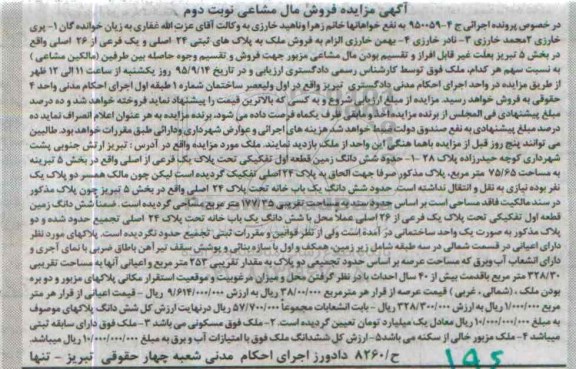 آگهی مزایده فروش مال مشاعی نوبت دوم
در خصوص پرونده اجرائی ج ۴-۹۵۰۰۵۹ به نفع خواهانها خانم زهرا وناهید خارزی به وکالت آقای عزت الله غفاری به زیان خواندگان ۱- پری
خارزی ۲محمد خارزی ۳- نادر خارزی ۴- بهمن خارزی الزام به فروش ملک به پلاک های ثبتی ۲۴ اصلی و یک فرعی از ۲۶ اصلی واقع
در بخش ۵ تبریز بعلت غیر قابل افراز و تقسیم بودن مال مشاعی مزبور جهت فروش و تقسیم وجوه حاصله بین طرفین (مالکین مشاعی)
به نسبت سهم هر کدام، ملک فوق توسط کارشناس رسمی دادگستری ارزیابی و در تاریخ ۹۵/۹/۱۴ روز یکشنبه از ساعت ۱۱ الی ۱۲ ظهر
از طریق مزایده در واحد اجرای احکام مدنی دادگستری تبریز واقع در اول ولیعصر ساختمان شماره ۱ طبقه اول اجرای احکام مدنی واحد ۴
حقوقی به فروش خواهد رسید. مزایده از مبلغ ارزیابی شروع و به کسی که بالاترین قیمت را پیشنهاد نماید فروخته خواهد شد و ده درصد
مبلغ پیشنهادی فی المجلس از برنده مزایده اخذ و مابقی ظرف یکماه فرصت داده می شود، برنده مزایده به هر عنوان اعلام انصراف نماید ده
درصد مبلغ پیشنهادی به نفع صندوق دولت ضبط خواهد شد هزینه های اجرائی و عوارض شهرداری ودارائی طبق مقررات خواهد بود. طالبین
می توانند پنج روز قبل از مزایده باهما هنگی این واحد از ملک بازدید نمایند. ملک مورد مزایده واقع در آدرس : تبریز ارتش جنوبی پشت
شهرداری کوچه حیدرزاده پلاک ۲۸ -۱- حدود شش دانگ زمین قطعه اول تفکیکی تحت پلاک یک فرعی از اصلی واقع در بخش ۵ تبریز
به مساحت ۷۵/۶۵ متر مربع، پلاک مذکور صرفا جهت الحاق به پلاک ۲۴ اصلی تفکیک گردیده است لیکن چون مالک همسر دو پلاک یک
نفر بوده نیازی به نقل و انتقال نداشته است. حدود شش دانگ یک باب خانه تحت پلاک ۲۴ اصلی واقع در بخش ۵ تبریز چون پلاک مذکور
در سند مالکیت فاقد مساحی است بر اساس حدود سند به مساحت تقریبی ۱۷۷/۳۵ متر مربع مساحی گردیده است. ضمنا شش دانگ زمین
قطعه اول تفکیکی تحت پلاک یک فرعی از ۲۶ اصلی عملا محل با شش دانگ یک باب خانه تحت پلاک ۲۴ اصلی تجمیع حدود شده و دو
پلاک مذکور به صورت یک واحد ساختمانی در آمده است ولی از نظر قوانین و مقررات ثبتی تجمیع حدود نگردیده است. پلاکهای مورد نظر
دارای اعیانی در قسمت شمالی در سه طبقه شامل زیر زمین، همکف و اول با سازه بنائی و پوشش سقف تیر آهن باطاق ضربی با نمای آجری و
دارای انشعاب آب وبرق که مساحت عرصه بر اساس حدود تجمیعی دو پلاک به مقدار تقریبی ۲۵۳ متر مربع واعیانی آنها به مساحت تقریبی
۳۲۸/۳۰ متر مربع باقدمت بیش از ۴۰ سال احداث با در نظر گرفتن محل و میزان مرغوبیت و موقعیت استقرار مکانی پلاکهای مزبور و دو بره
بودن ملک، (شمالی، غربی) قیمت عرصه از قرار هر مترمربع ۳۸/۰۰۰/۰۰۰ ریال به ارزش ۹/۶۱۴/۰۰۰/۰۰۰ ریال - قیمت اعیانی از قرار هر متر
مربع ۱/۰۰۰/۰۰۰ ریال به ارزش ۳۲۸/۳۰۰/۰۰۰ ریال - بابت انشعابات مجموعا ۵۷/۷۰۰/۰۰۰ ریال درنهایت ارزش کل شش دانگ پلاکهای موصوف
به مبلغ ۱۰/۰۰۰/۰۰۰/۰۰۰ ریال معادل یک میلیارد تومان تعیین گردیده است. ۲- ملک فوق مسکونی می باشد ۳- ملک فوق دارای سابقه ثبتی
میباشد ۴- ملک مزبور خالی از سکنه می باشد ۵- ارزش کل ششدانگ ملک فوق با امتیازات آب و برق به مبلغ ۱۰/۰۰۰/۰۰۰/۰۰۰ ریال میباشد.
ح/۸۲۶۰ دادورز اجرای احکام مدنی شعبه چهار حقوقی تبریز - تنها
۱۹۶